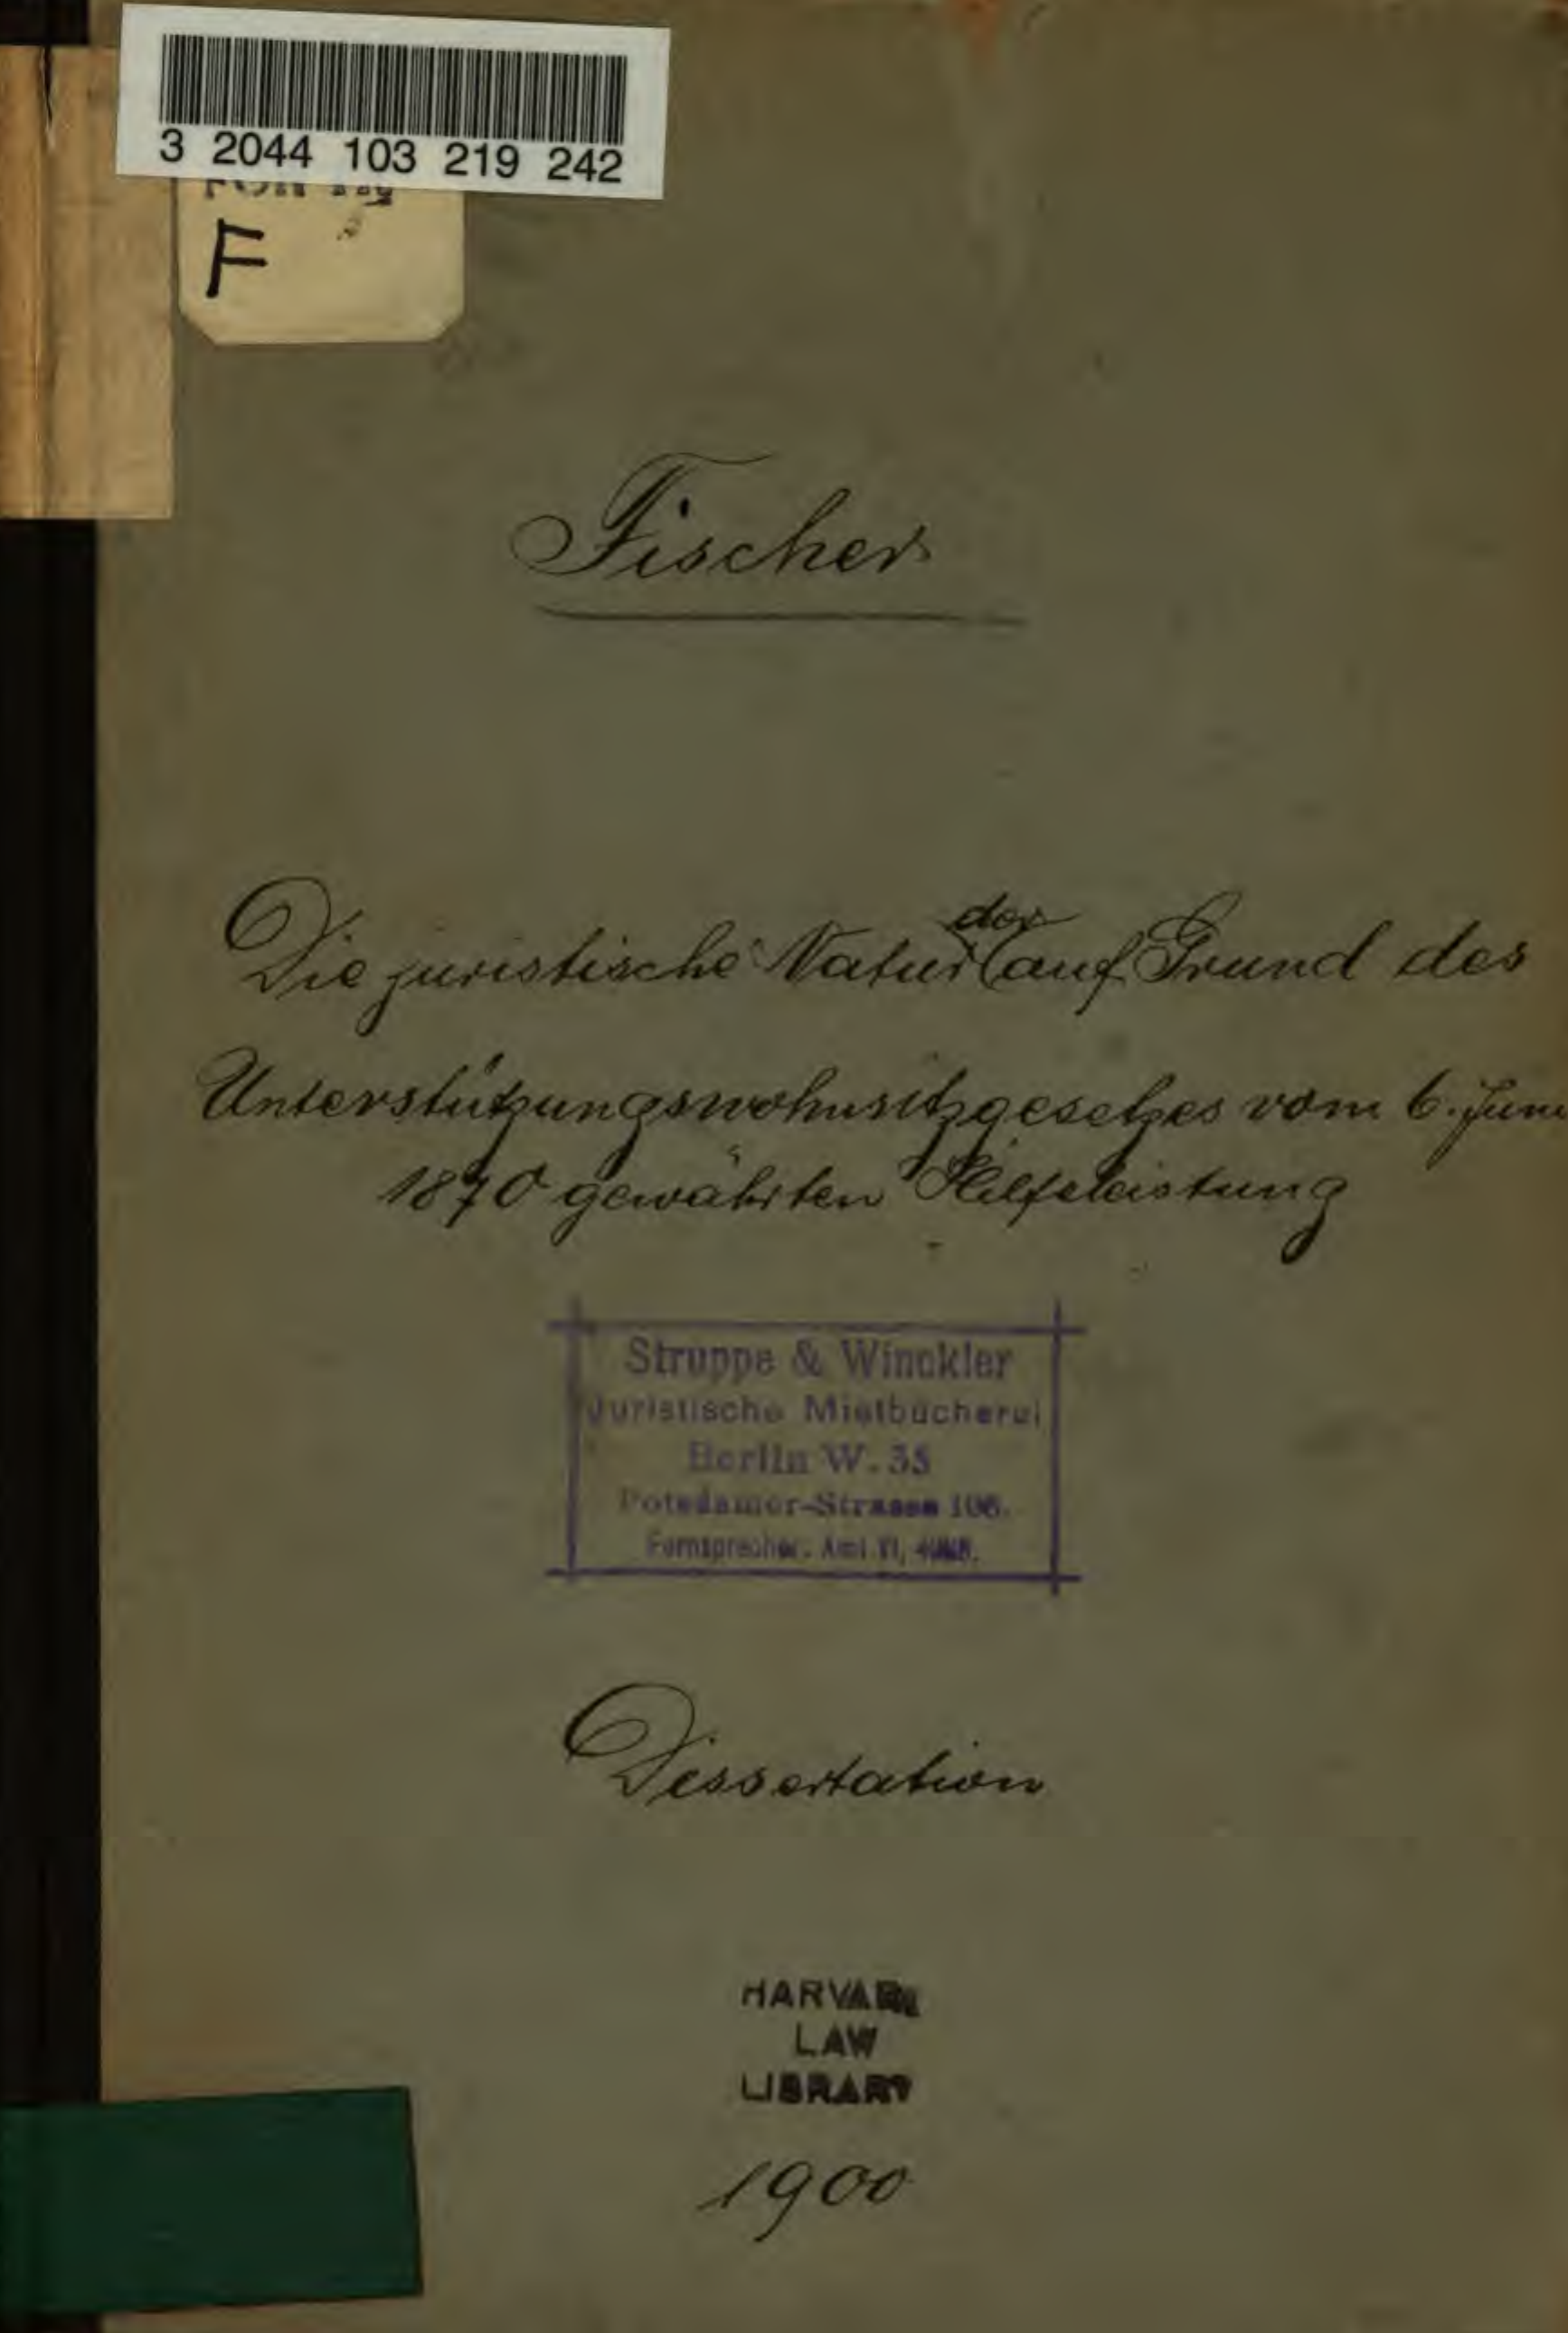 3 2044 103 219 242
F
Fischer
Die juristische Natur der auf Grund des
Unterstützungswohnsitzgesetzes vom 6. Juni
1870 gewährten Hilfeleistung
Struppe & Winckler
Juristische Mietbücherei
Berlin W. 35
Potsdamer-Strasse 108.
Fernsprecher. Amt VI,
Dissertation
HARVARD
LAW
LIBRARY
1900